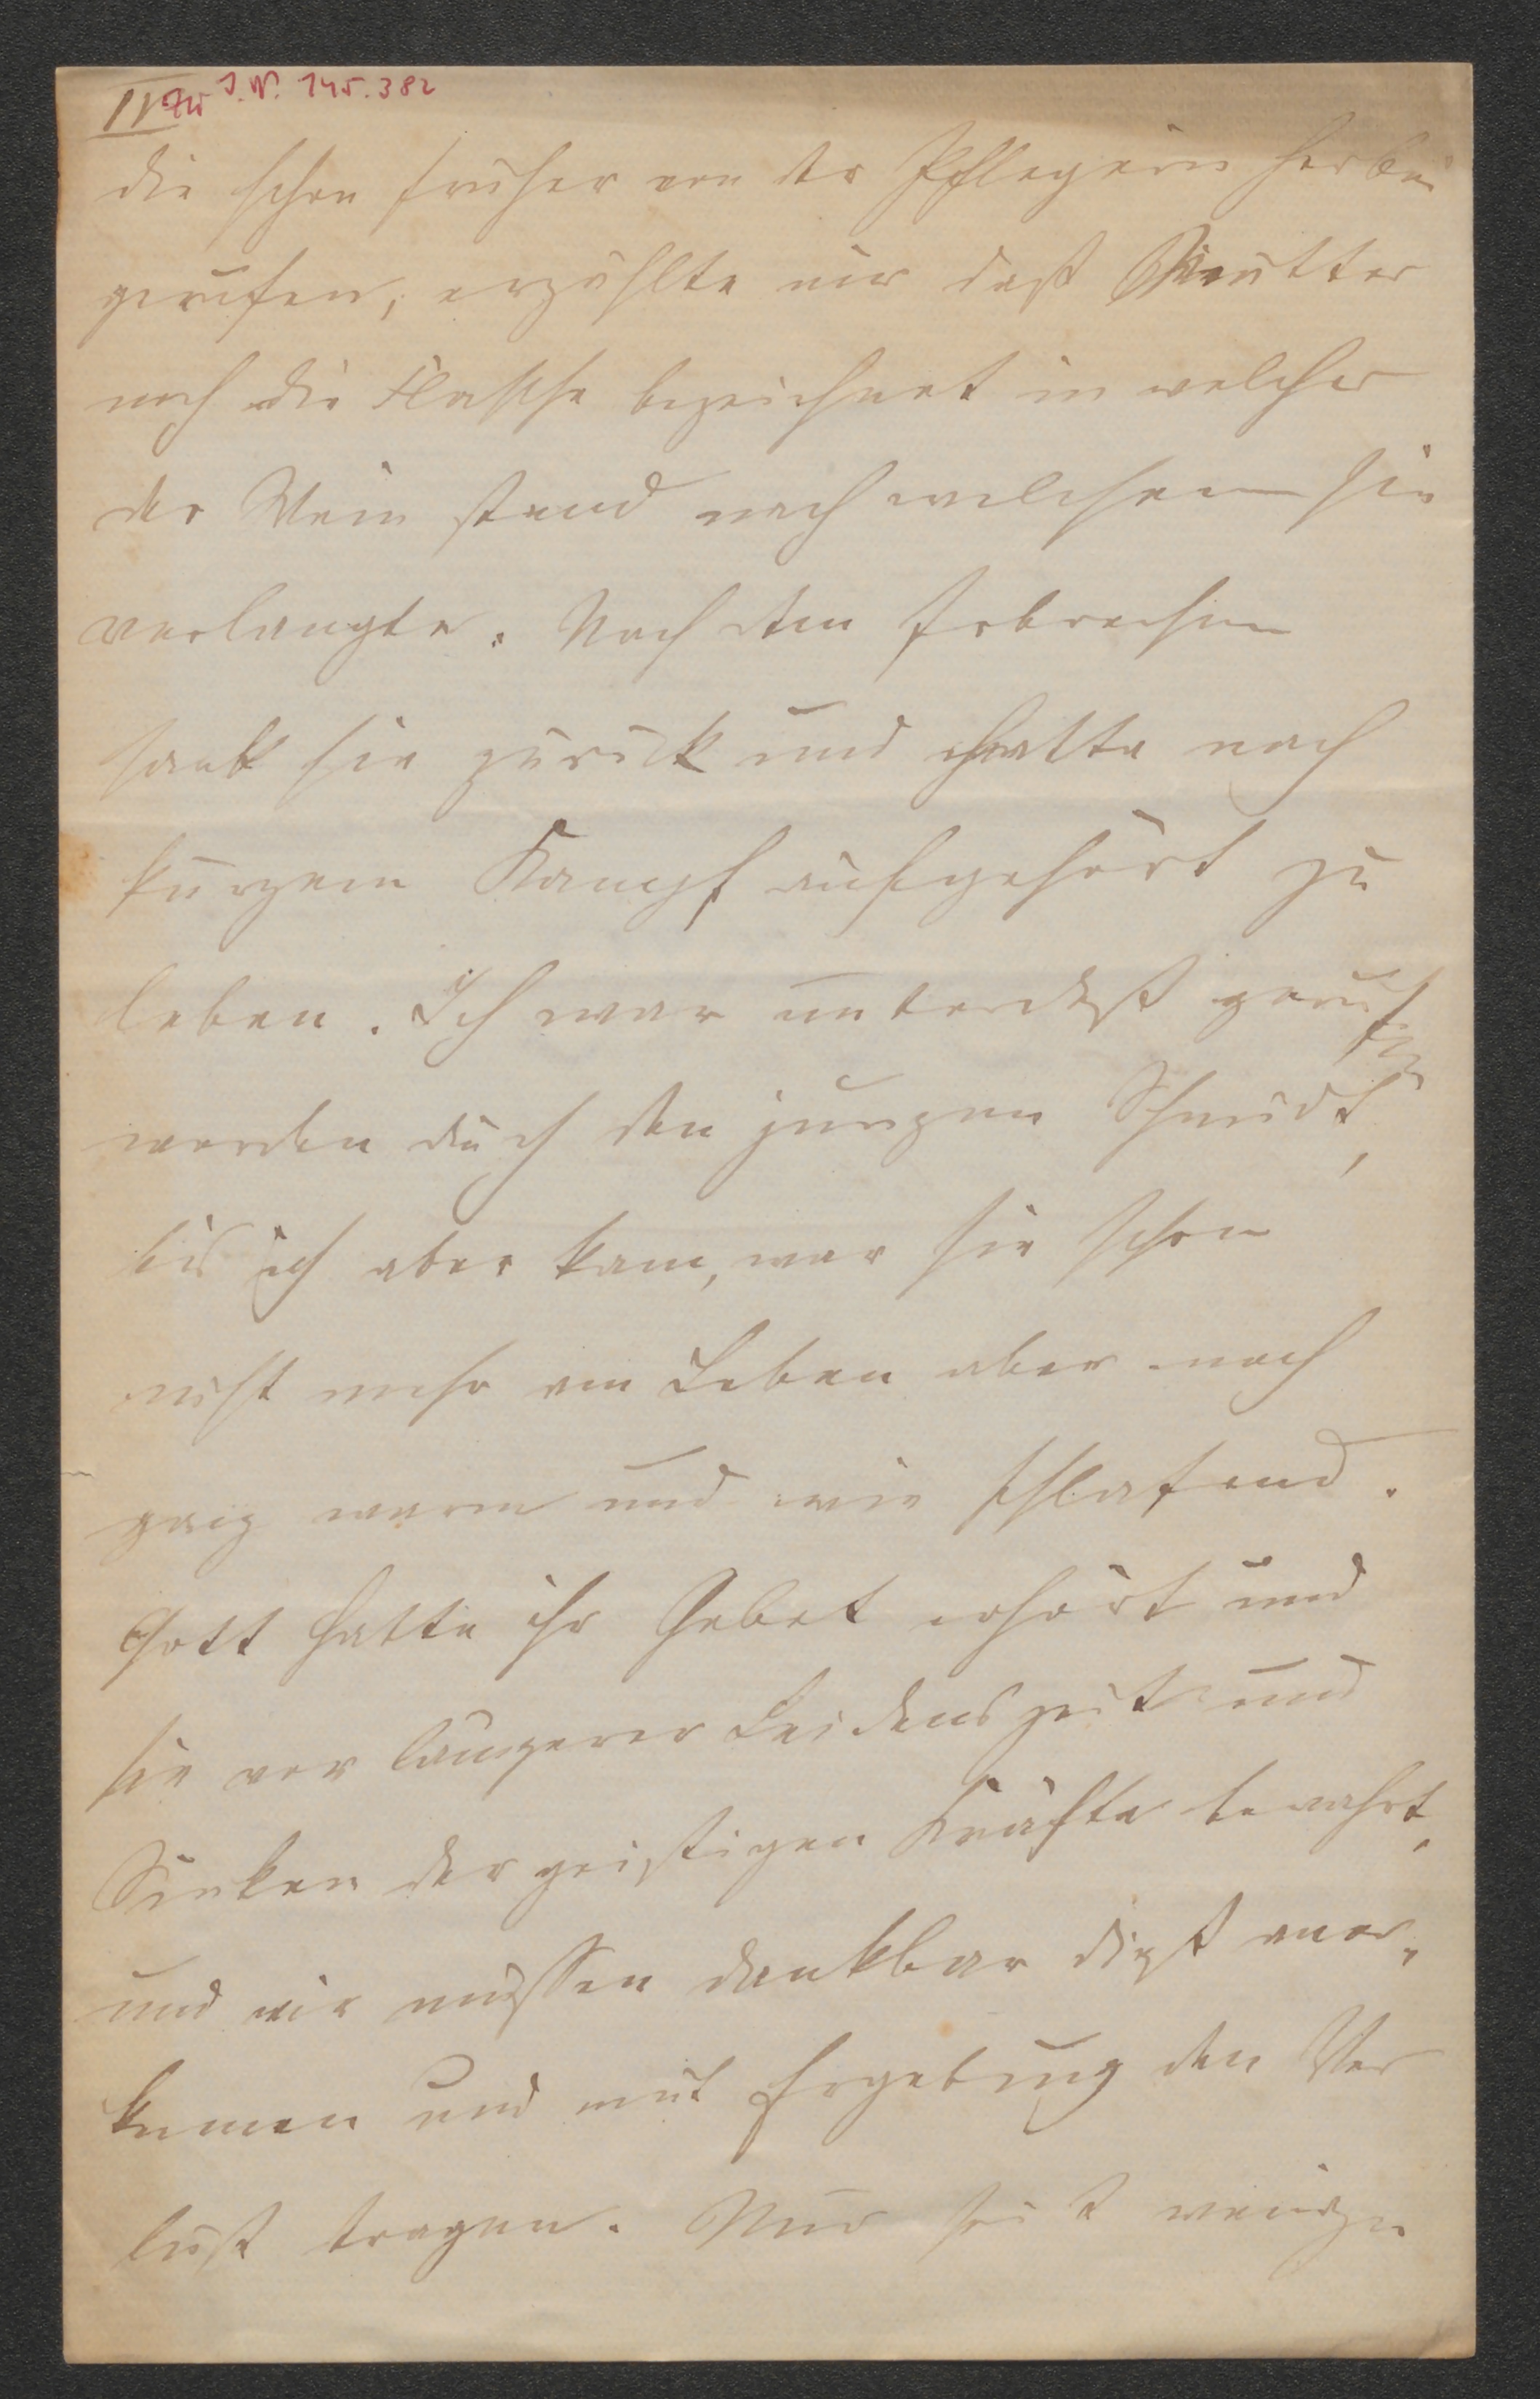 IV zu I.N. 145.382
die schon früher von der Pflegerin herbei
gerufen, erzählte mir daß Mutter
noch die Flasche bezeichnet in welcher
der Wein stand nach welchem sie
verlangte. Nach dem Erbrechen
sank sie zurück und hatte nach
kurzem Kampf aufgehört zu
leben. Ich war unterdeß gerufen
worden durch den jungen Schmidt,
bis ich aber kam, war sie schon
nicht mehr am Leben aber noch
ganz warm und wie schlafend.
Gott hatte ihr Gebet erhört und
sie vor längerer Leidenszeit und
Sinken der geistigen Kräfte bewahrt,
und wir müssen dankbar dieß aner-
kennen und mit Ergebung den Ver
lust tragen. Nur seit wenigen